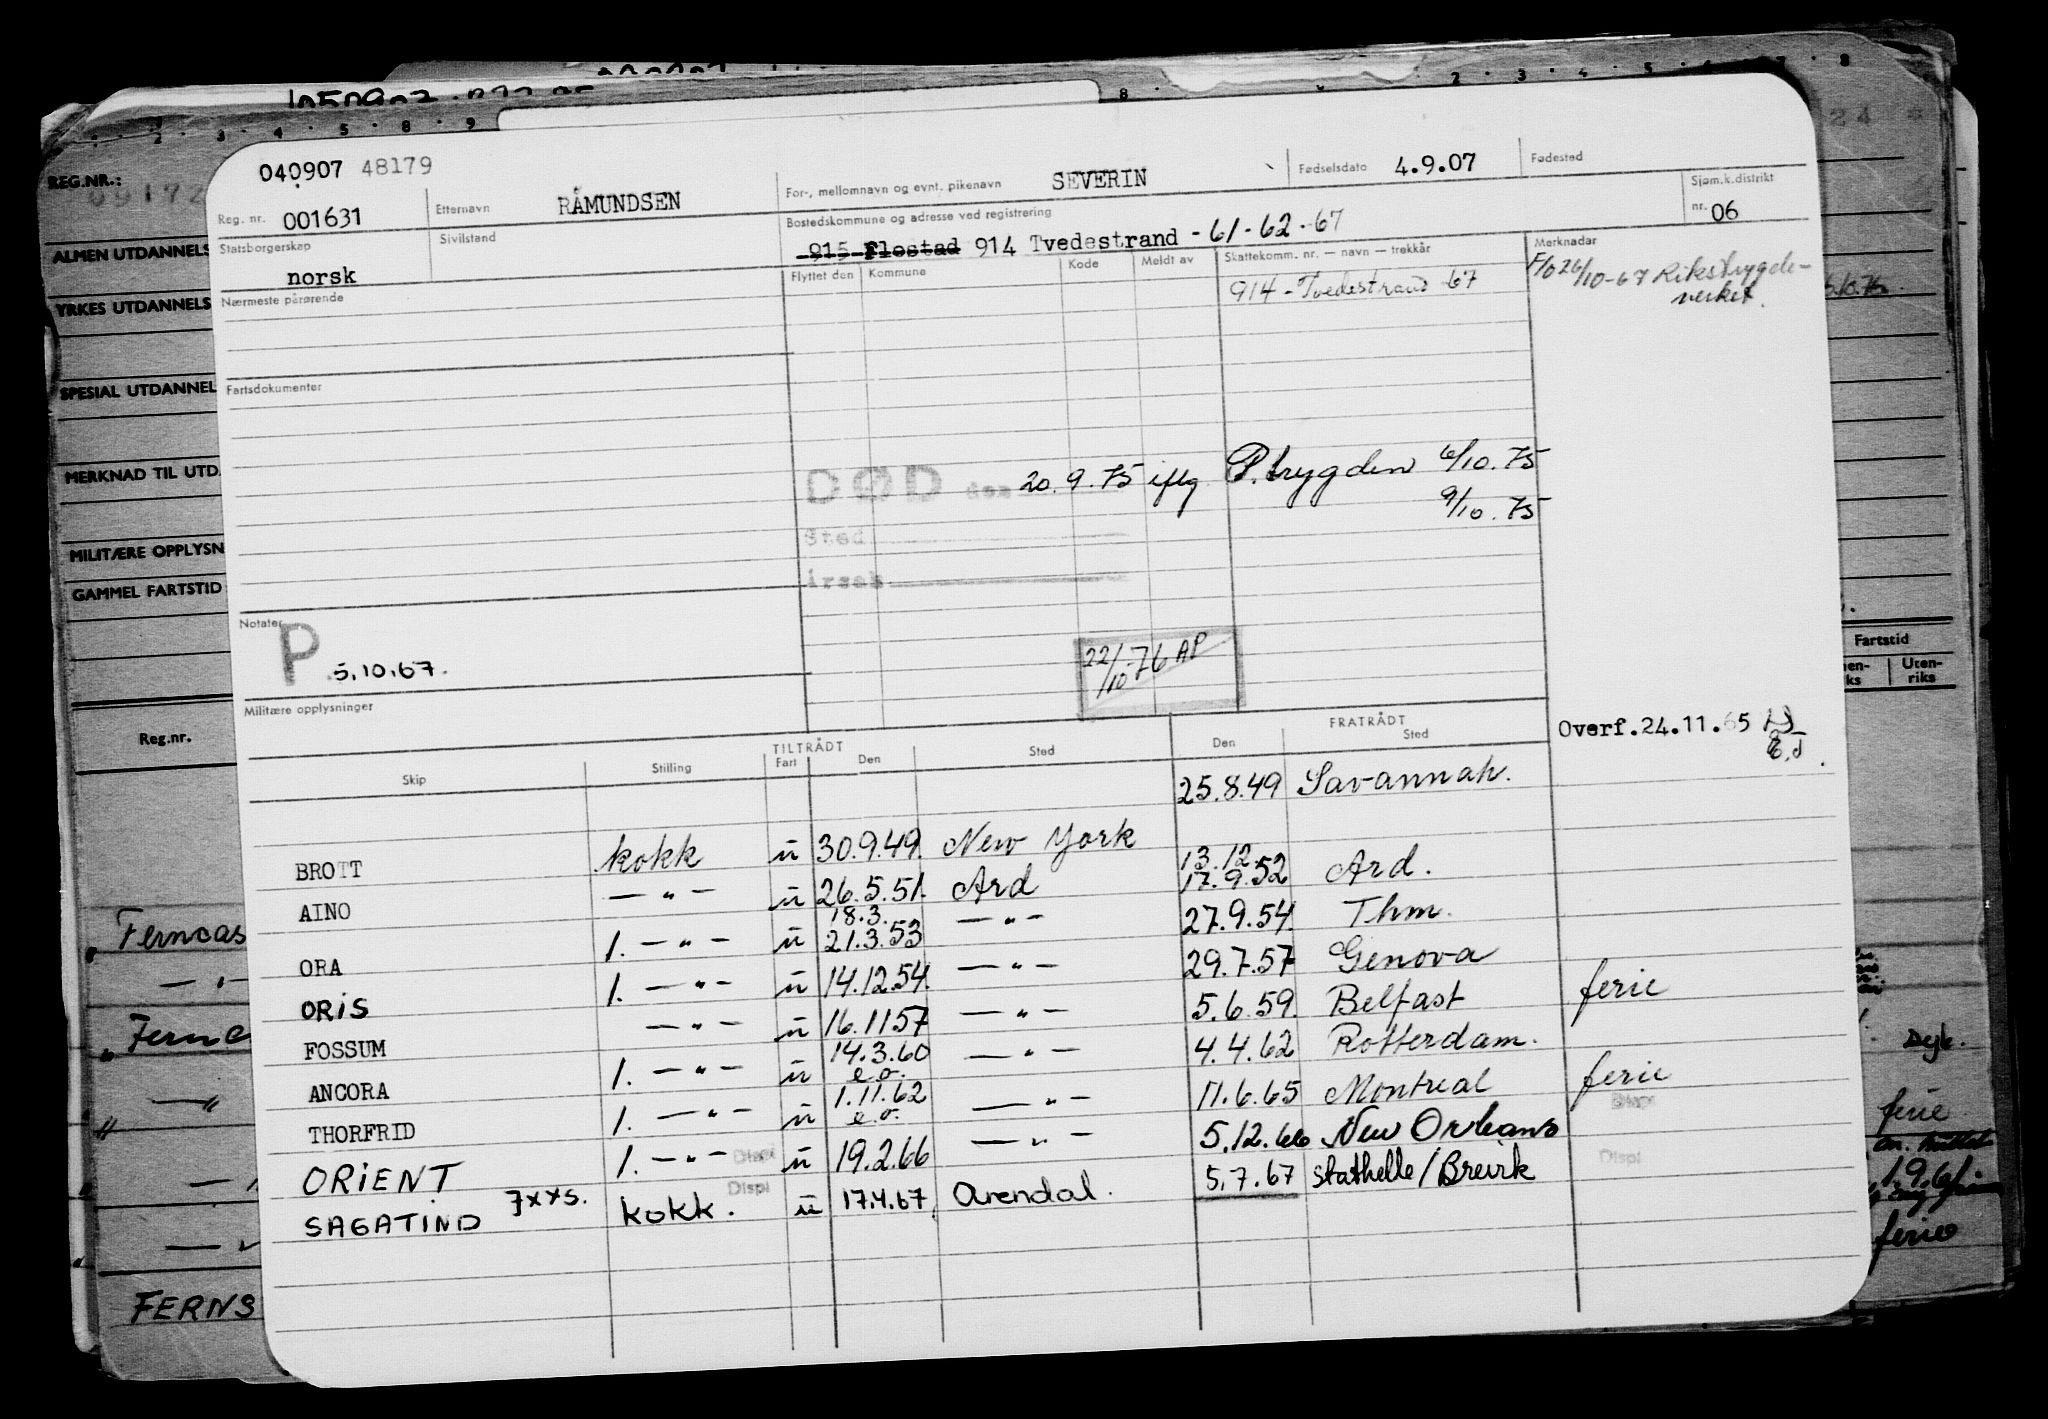 040907 48179
Reg. nr. 001631
Etternavn RÅMUNDSEN
For-, mellomnavn og evnt. pikenavn SEVERIN
Fødselsdato 4.9.07
Fødested
Statsborgerskap norsk
Sivilstand
Bostedskommune og adresse ved registrering
915 Flostad 914 Tvedestrand - 61-62-67
Sjøm.k.distrikt
nr. 06
Nærmeste pårørende
Flyttet den Kommune Kode Meldt av Skattekomm. nr. — navn — trekkår
914 - Tvedestrand 67
Merknadar
F/o 26/10-67 Rikstrygde-
verket.
Fartsdokumenter
DØD den 20.9.75 iflg. P.trygden 6/10.75
9/10.75
Sted
Årsak
Notater
P 5.10.67.
22/10-76 AP
Militære opplysninger
TILTRÅDT FRATRÅDT
Overf.24.11.65
Skip Stilling Fart Den Sted Den Sted
25.8.49 Savannah.
BROTT kokk u 30.9.49. New York 13.12.
AINO — " — u 26.5.51. Ard 17.9.52 Ard.
ORA 1. — " — u 18.3. 21.3.53 — " — 27.9.54. Thm.
ORIS 1. — " — u 14.12.54. — " — 29.7.57 Genova
FOSSUM — " — u 16.11 57 — " — 5.6.59. Belfast ferie
ANCORA 1. — " — u 14.3.60 e.o. — " — 4.4.62 Rotterdam.
THORFRID 1. — " — u 1.11.62 e.o. — " — 11.6.65 Montreal ferie
Displ
ORIENT 1. — " — Displ u 19.2.66 — " — 5.12.66 New Orleans
SAGATIND 7xxs. kokk. Displ u 17.4.67. Arendal. 5.7.67 Stathelle/Brevik Displ
REG.NR.:
ALMEN UTDANNELS
YRKES UTDANNELS
SPESIAL UTDANNEL
MERKNAD TIL UTD.
MILITÆRE OPPLYSN
GAMMEL FARTSTID
Reg.nr.
Ferncas
Fernc
FERNS
Fartstid
Uten-
riks
Dejl.
ferie
1.9.61
ferie